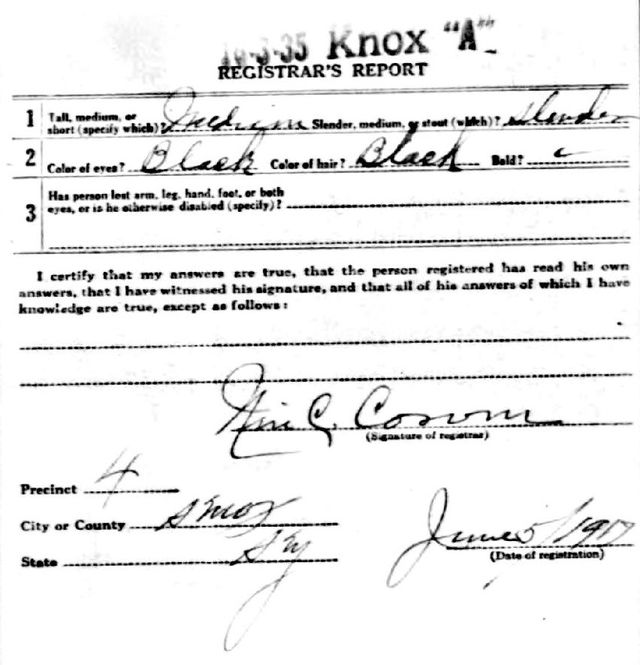 16-3-35 Knox "A"
REGISTRAR'S REPORT
1 Tall, medium, or short (specify which)? Medium Slender, medium, or stout (which)? Slender
2 Color of eyes? Black Color of hair? Black Bald?
3 Has person lost arm, leg, hand, foot, or both
eyes, or is he otherwise disabled (specify)?
I certify that my answers are true, that the person registered has read his own
answers, that I have witnessed his signature, and that all of his answers of which I have
knowledge are true, except as follows:
(Signature of registrar)
Precinct 4
City or County Knox
State Ky
June 5/1917
(Date of registration)